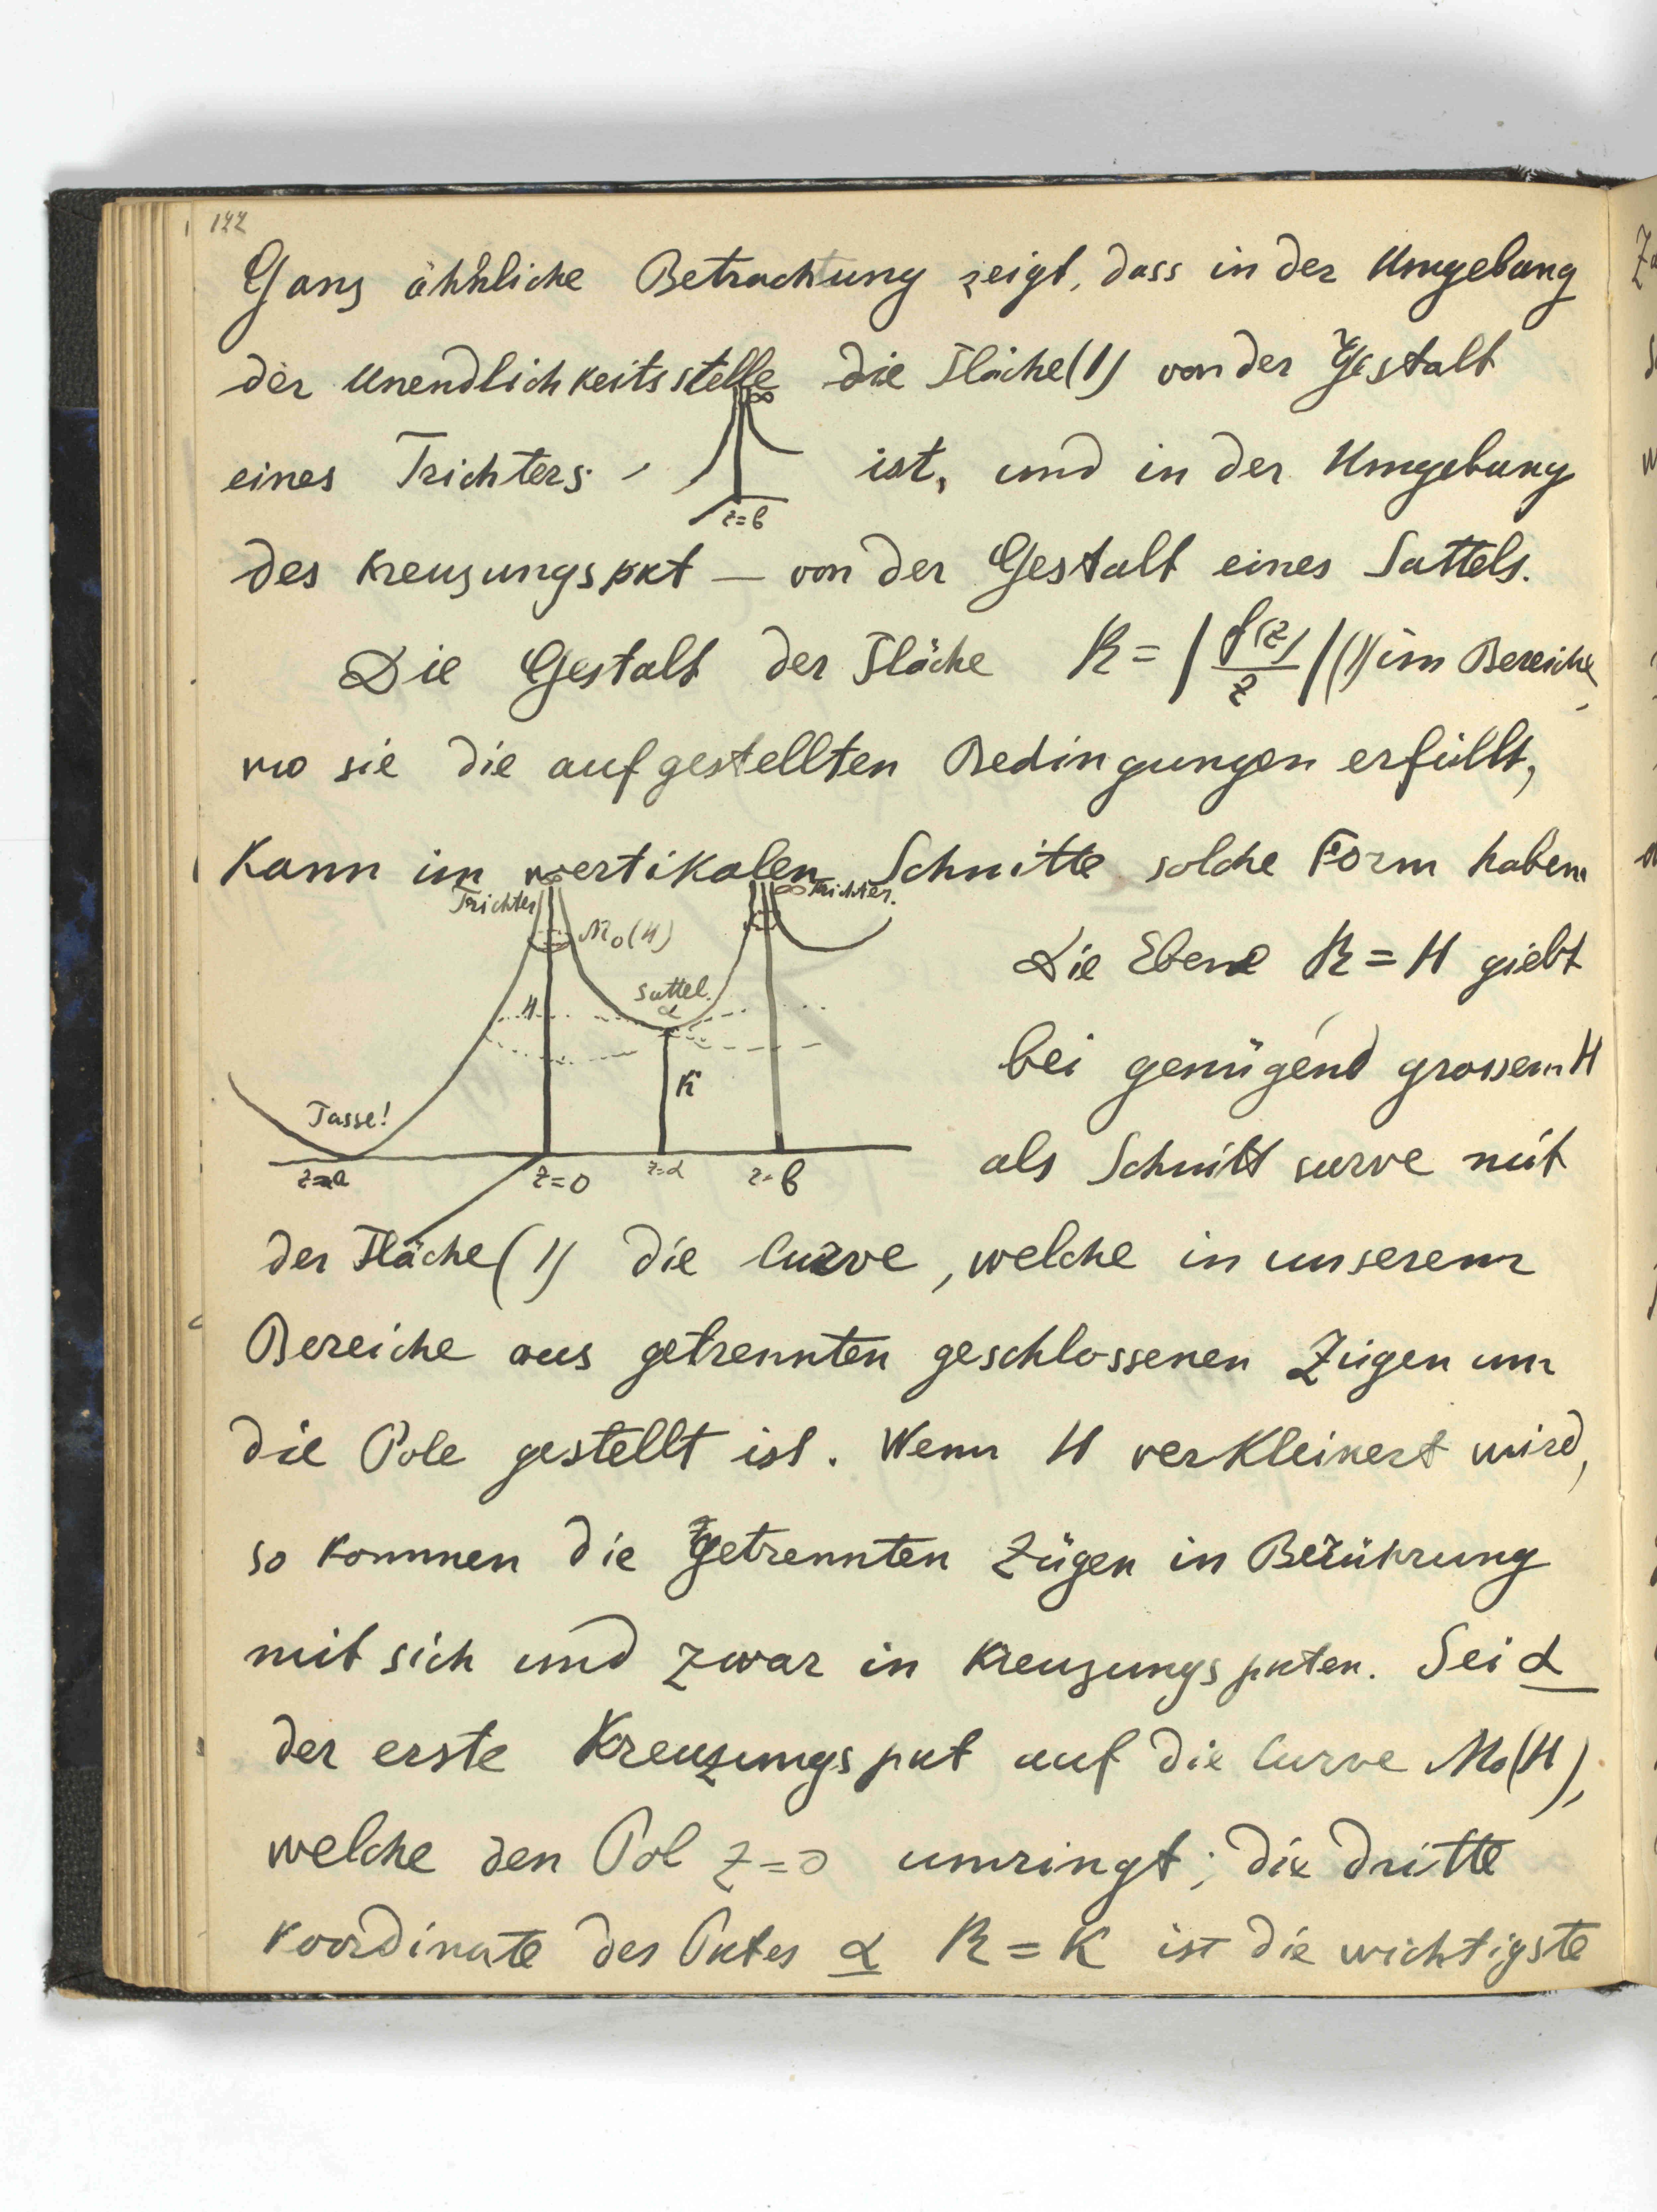 122
Ganz ähnliche Betrachtung zeigt, dass in der Umgebung
der Unendlichkeitsstelle die Fläche (1) von der Gestalt
∞
eines Trichters ist, und in der Umgebung
z=b
des Kreuzungspkt — von der Gestalt eines Sattels.
Die Gestalt der Fläche R = |f(z)/z| (1) im Bereiche,
wo sie die aufgestellten Bedingungen erfüllt,
kann im vertikalen Schnitte solche Form haben
Trichter ∞ Trichter.
M₀(H)
Die Ebene R = H giebt
Sattel.
α
H
bei genügend grossem H
K
Tasse!
als Schnittcurve mit
z=a z=0 z=α z=b
der Fläche (1) die Curve, welche in unserem
Bereiche aus getrennten geschlossenen Zügen um
die Pole gestellt ist. Wenn H verkleinert wird,
so kommen die getrennten Zügen in Berührung
mit sich und zwar in Kreuzungspkten. Sei α
der erste Kreuzungspkt auf die Curve M₀(H),
welche den Pol z=0 umringt; die dritte
Koordinate des Pktes α R = K ist die wichtigste